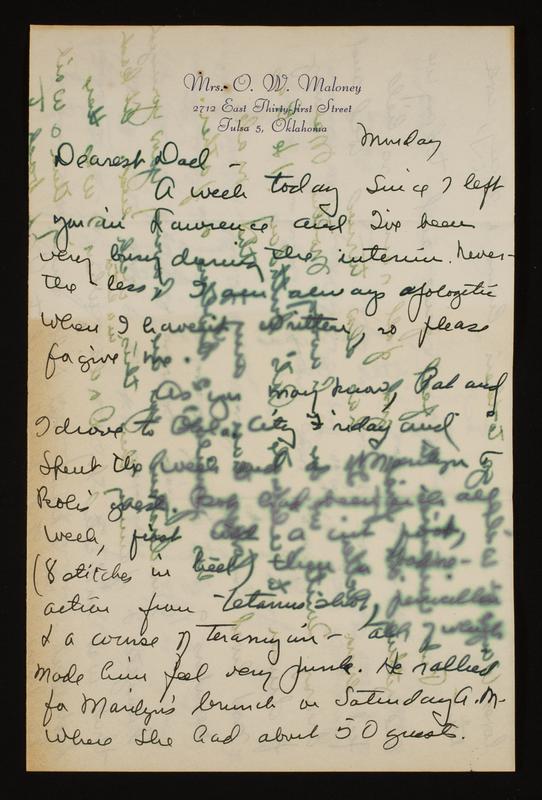 Mrs. O. W. Maloney
2712 East Thirty-first Street
Tulsa 5, Oklahoma
Monday
Dearest Dad -
A week today since I left
you in Lawrence and I've been
very busy during the interim. Never-
the-less, I am always apologetic
when I haven't written, so please
forgive me.
As you may know, Pat and
I drove to Okla. City Friday and
spent the week end as Marilyn &
Bob's guest. Bob had been ill all
week, first had a cut foot,
(8 stitches in heel) then a
action from tetanus shot, penicillin
& a course of Terramycin - all of which
made him feel very punk. He rallied
for Marilyn's brunch on Saturday A.M.
where she had about 50 guests.